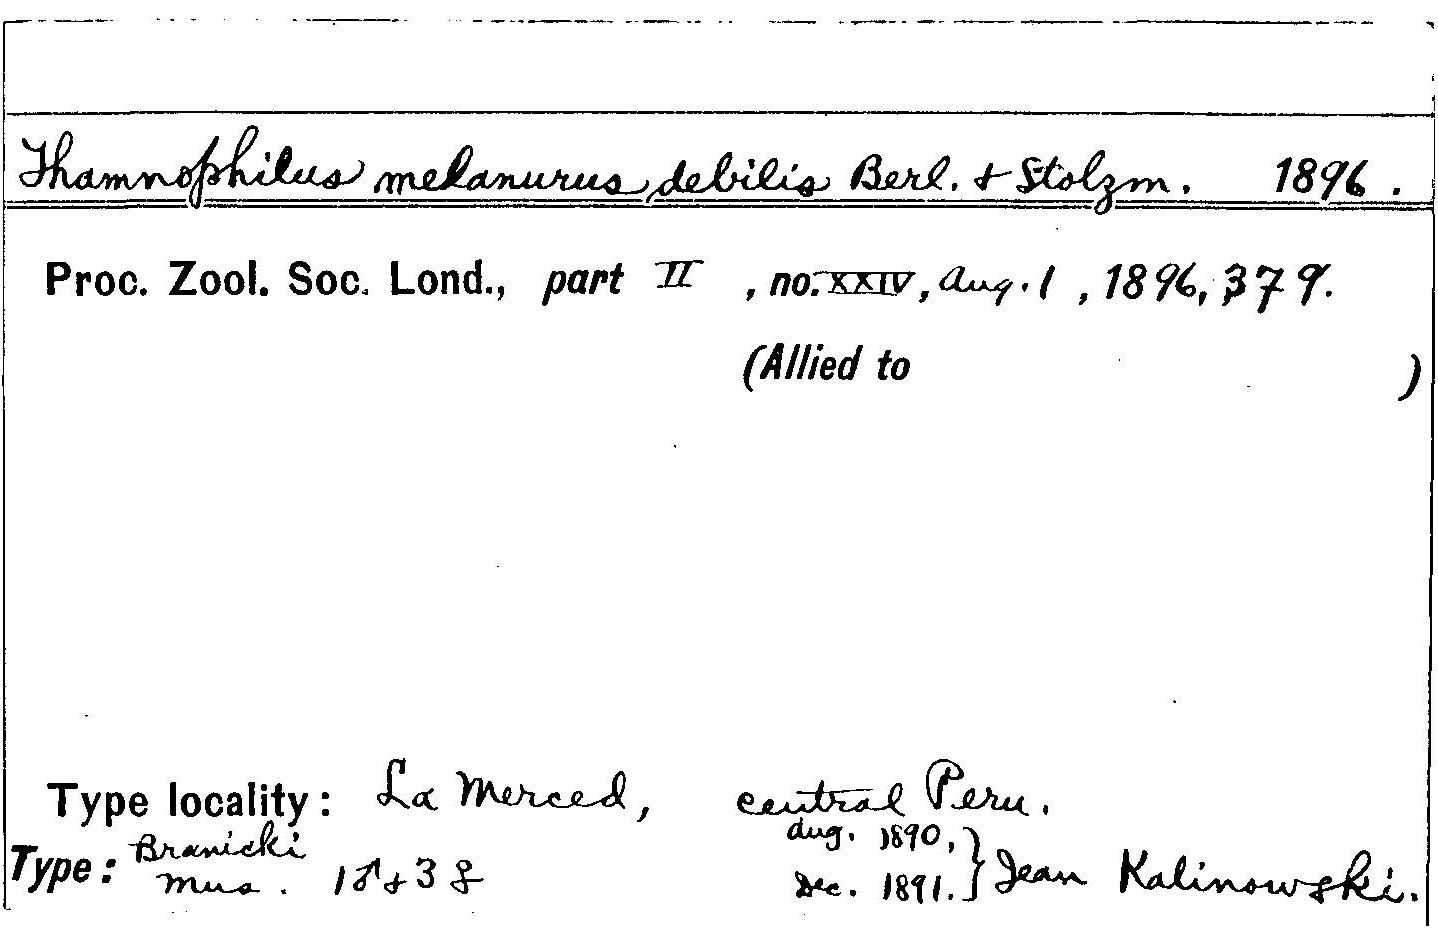 Thamnophilus melanurus debilis Berl. & Stolzm. 1896.
Proc. Zool. Soc. Lond., part II, no. XXIV, Aug. 1, 1896, 379.
(Allied to )
Type locality: La Merced, central Peru.
Type: Branicki Mus. 1♂ & 3♀ Aug. 1890, Dec. 1891.} Jean Kalinowski.